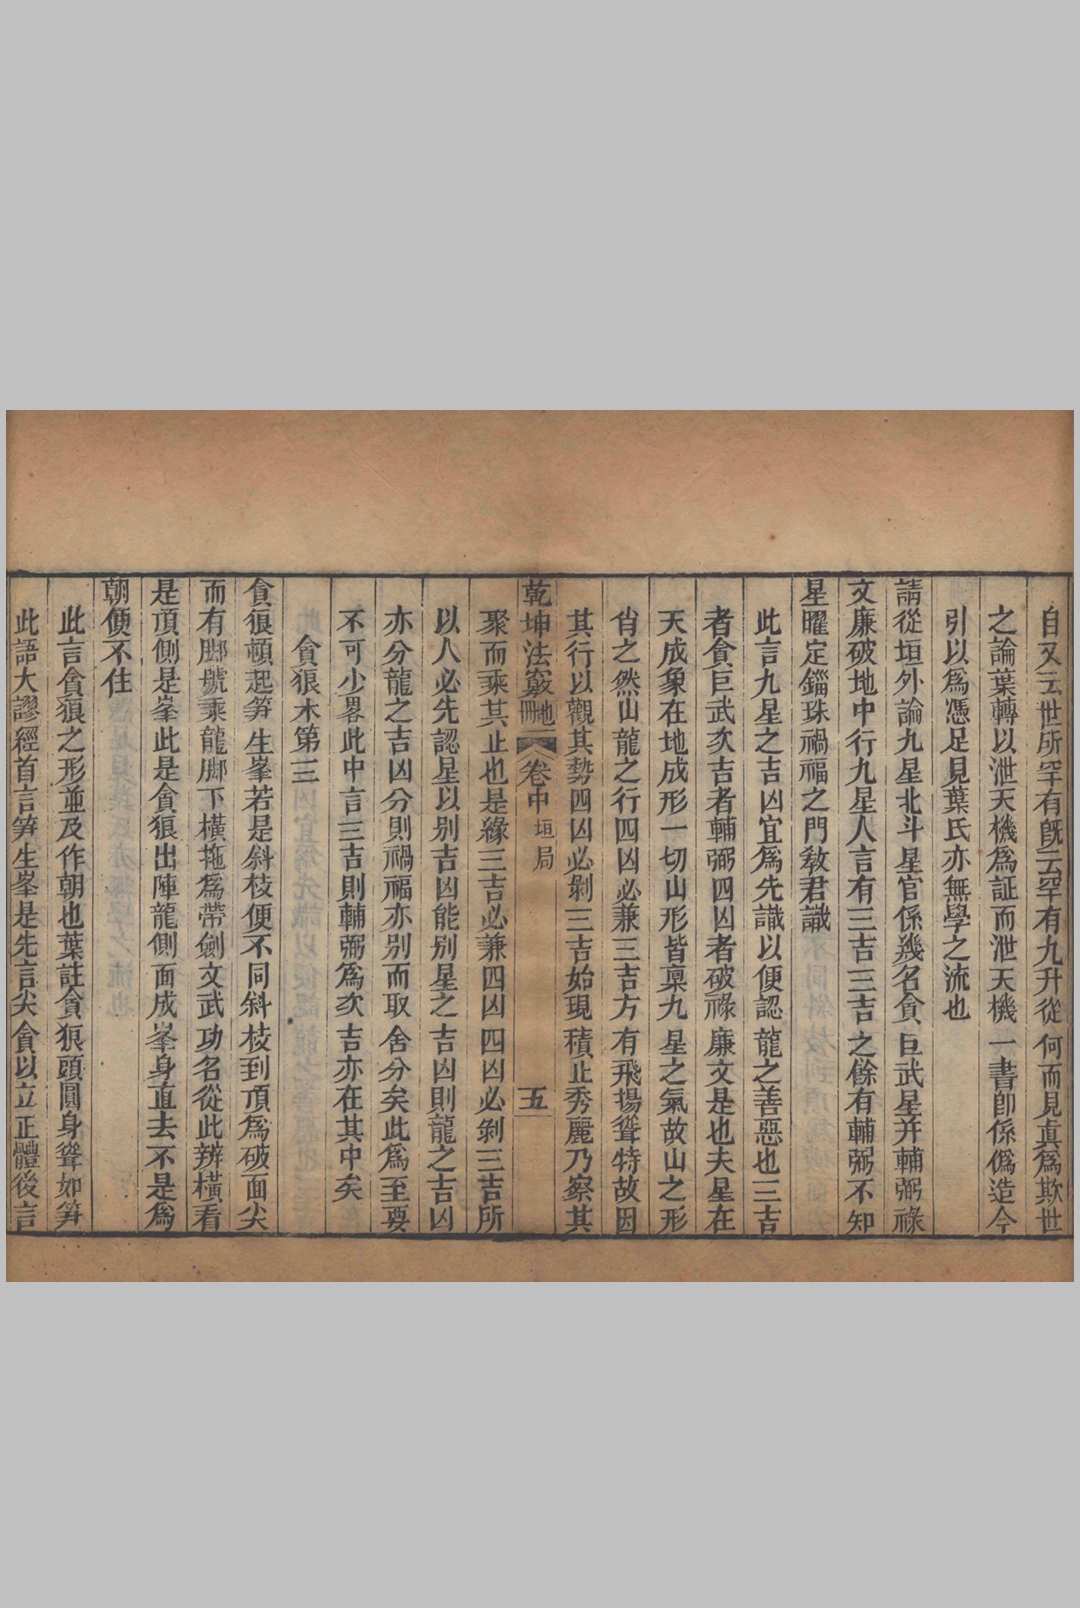 自又云世所罕有旣云罕有九升從何而見真爲欺世
之論葉轉以泄天機爲証而泄天機一書卽係僞造今
引以爲憑足見葉氏亦無學之流也
請從垣外論九星北斗星官係幾名貪巨武星并輔弼祿
文廉破地中行九星人言有三吉三吉之餘有輔弼不知
星曜定錙珠禍福之門敎君識
此言九星之吉凶宜爲先識以便認龍之善惡也三吉
者貪巨武次吉者輔弼四凶者破祿廉文是也夫星在
天成象在地成形一切山形皆稟九星之氣故山之形
肖之然山龍之行四凶必兼三吉方有飛揚聳特故因
其行以觀其勢四凶必剝三吉始現積止秀麗乃察其
乾坤法竅地冊 卷中 垣局 五
聚而乘其止也是緣三吉必兼四凶四凶必剝三吉所
以人必先認星以别吉凶能别星之吉凶則龍之吉凶
亦分龍之吉凶分則禍福亦别而取舍分矣此爲至要
不可少畧此中言三吉則輔弼爲次吉亦在其中矣
貪狼木第三
貪狠頓起笋生峯若是斜枝便不同斜枝到頂爲破面尖
而有脚號乘龍脚下橫拖爲帶劍文武功名從此辨橫看
是頂側是峯此是貪狼出陣龍側面成峯身直去不是爲
朝便不住
此言貪狼之形並及作朝也葉註貪狼頭圓身聳如笋
此語大謬經首言笋生峯是先言尖貪以立正體後言